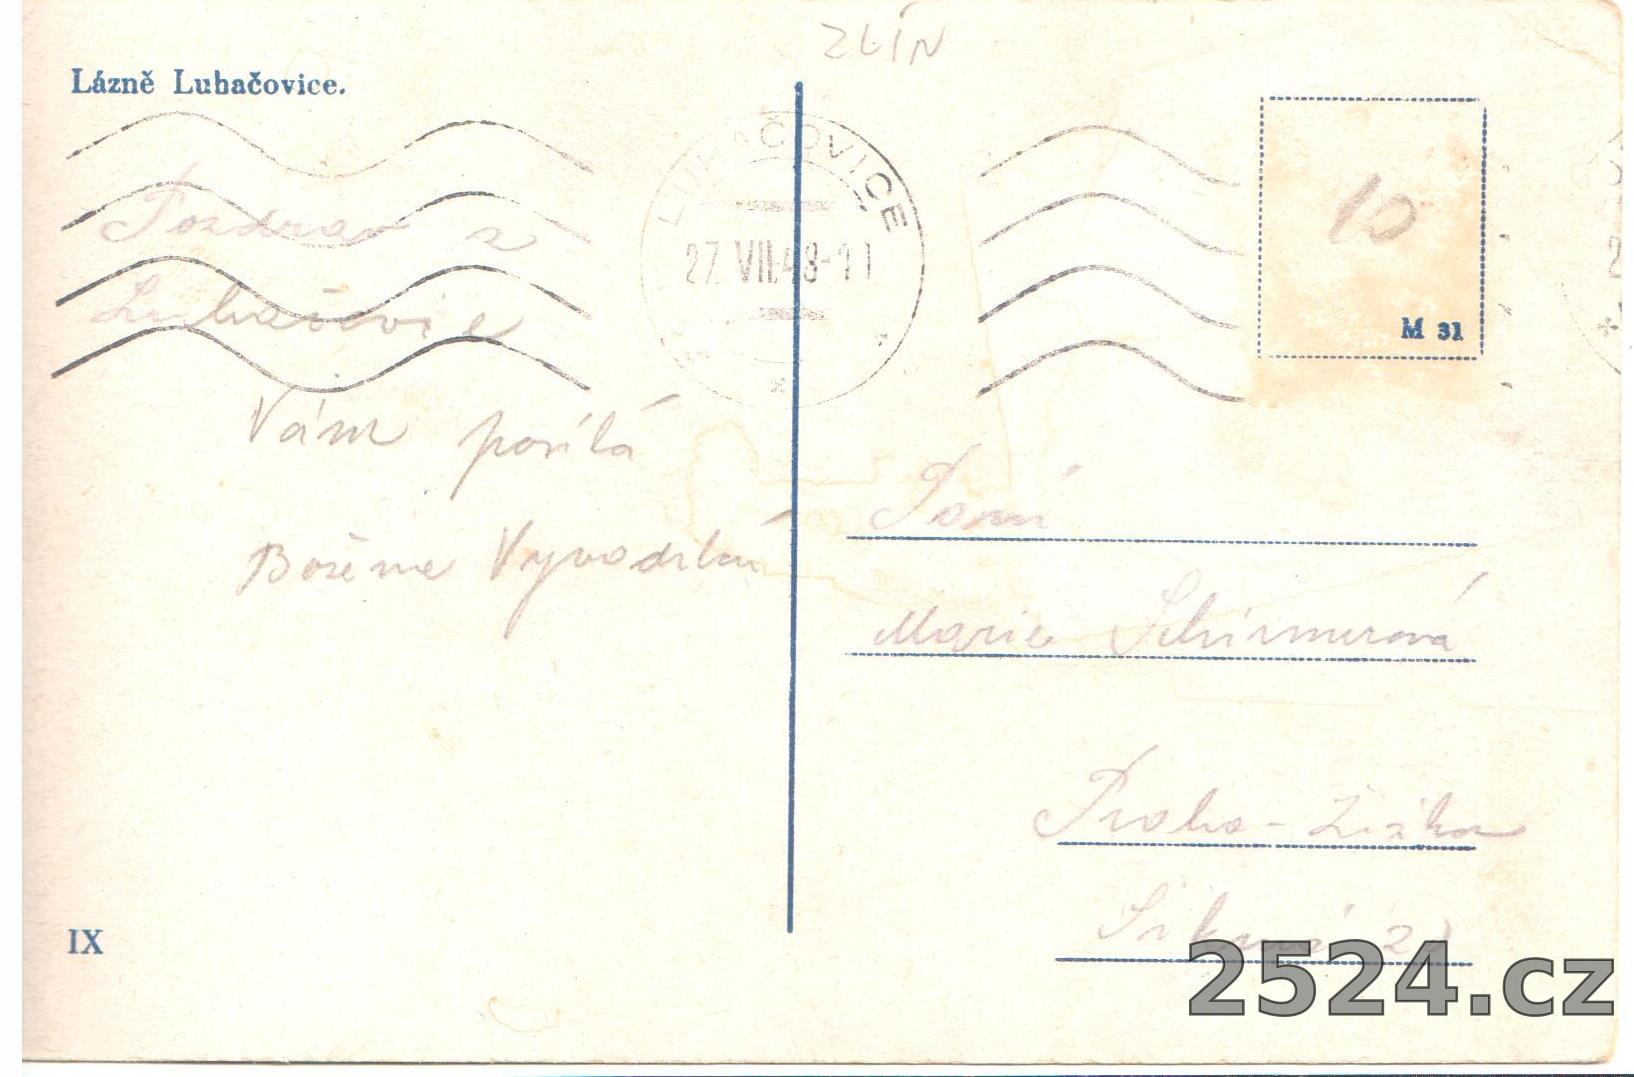 ZLÍN
Lázně Luhačovice.
LUHAČOVICE
27. VII. 48-1
Pozdrav z
Luhačovic
Vám posílá
Božena
10
M 31
Paní
Marie Schirmerová
Praha - Žižkov
Sikmá
IX
2524.cz